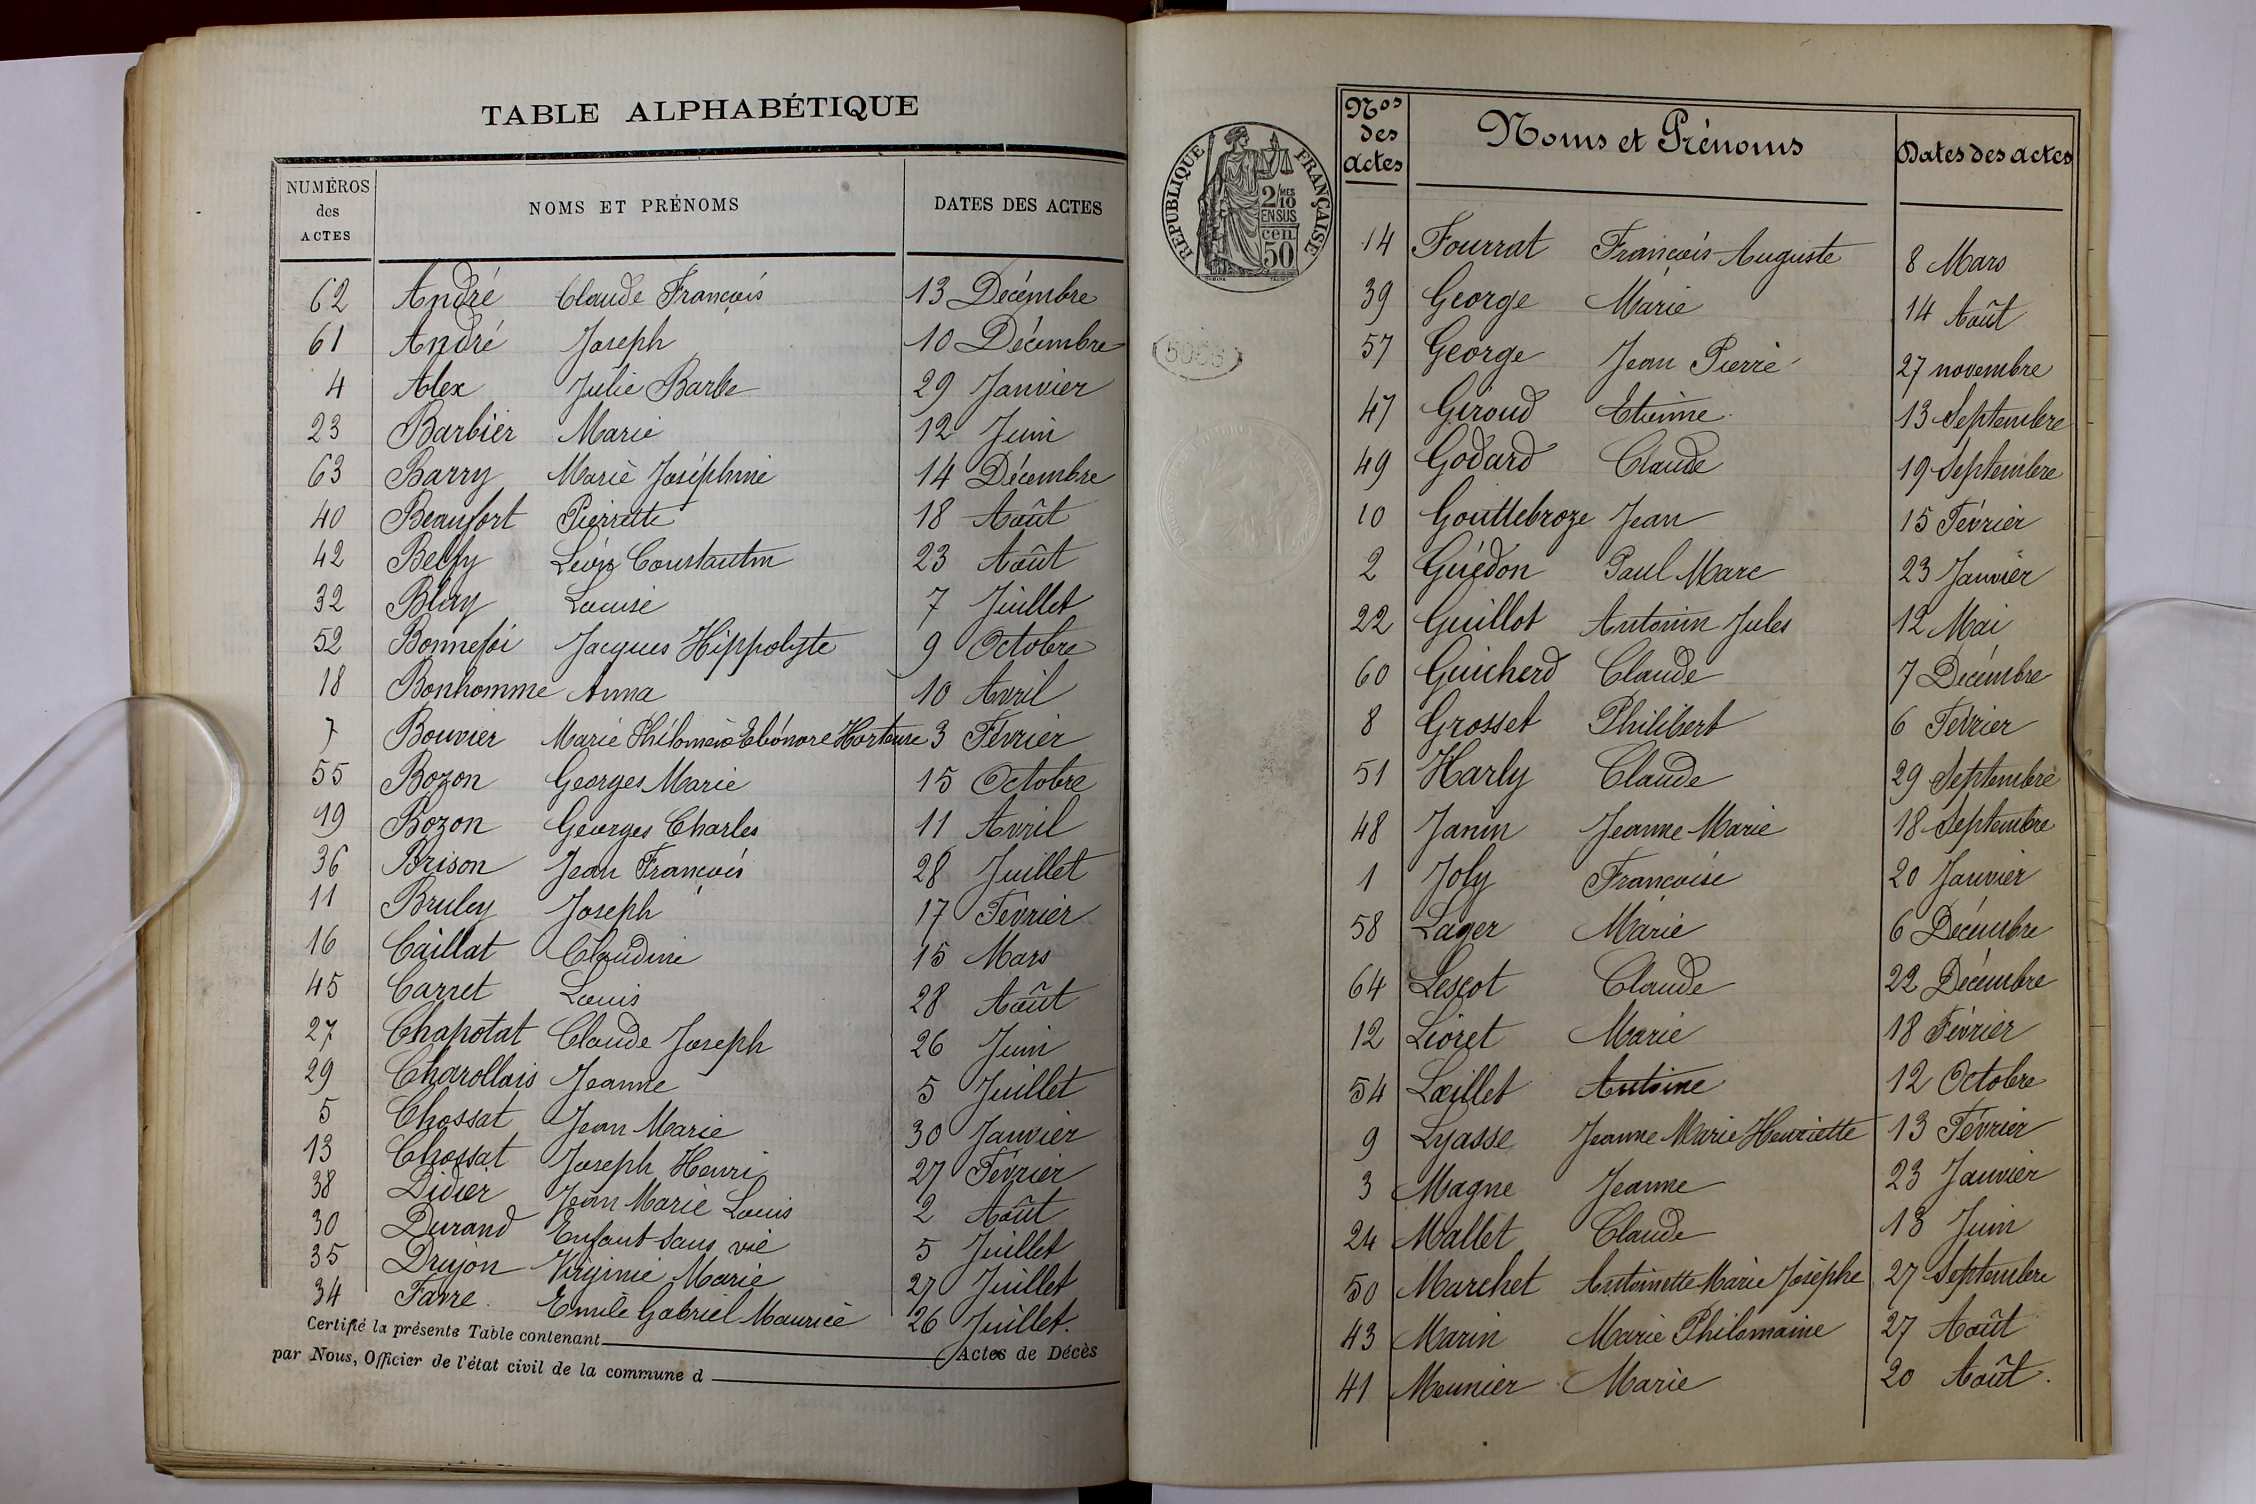 TABLE ALPHABÉTIQUE
NUMÉROS des ACTES NOMS ET PRÉNOMS DATES DES ACTES
62 André Claude François 13 Décembre
61 André Joseph 10 Décembre
4 Alex Julie Barbe 29 Janvier
23 Barbier Marie 12 Juin
63 Barry Marie Joséphine 14 Décembre
40 Beaufort Pierrette 18 Août
42 Belfy Léon Constantin 23 Août
32 Blay Louise 7 Juillet
52 Bonnefoi Jacques Hippolyte 9 Octobre
18 Bonhomme Anna 10 Avril
7 Bouvier Marie Philomène Eléonore Hortense 3 Février
55 Bozon Georges Marie 15 Octobre
19 Bozon Georges Charles 11 Avril
36 Brison Jean François 28 Juillet
11 Bruley Joseph 17 Février
16 Caillat Claudine 15 Mars
45 Carret Louis 28 Août
27 Chapotat Claude Joseph 26 Juin
29 Charollais Jeanne 5 Juillet
5 Chossat Jean Marie 30 Janvier
13 Chossat Joseph Henri 27 Février
38 Didier Jean Marie Louis 2 Août
30 Durand Enfant sans vie 5 Juillet
35 Drujon Virginie Marie 27 Juillet
34 Favre Emile Gabriel Maurice 26 Juillet.
Certifié la présente Table contenant Actes de Décès
par Nous, Officier de l'état civil de la commune d
RÉPUBLIQUE FRANÇAISE
2/10 MES
EN SUS
cen.
50
Nos des actes Noms et Prénoms Dates des actes
14 Fourrat François Auguste 8 Mars
39 George Marie 14 Août
57 George Jean Pierre 27 novembre
47 Giroud Etienne 13 Septembre
49 Godard Claude 19 Septembre
10 Gouttebroze Jean 15 Février
2 Guédon Paul Marc 23 Janvier
22 Guillot Antonin Jules 12 Mai
60 Guicherd Claude 7 Décembre
8 Grosset Philibert 6 Février
51 Harly Claude 29 Septembre
48 Janin Jeanne Marie 18 Septembre
1 Joly Françoise 20 Janvier
58 Lager Marie 6 Décembre
64 Lescot Claude 22 Décembre
12 Lioret Marie 18 Février
54 Lœillet Antoine 12 Octobre
9 Lyasse Jeanne Marie Henriette 13 Février
3 Magne Jeanne 23 Janvier
24 Mallet Claude 13 Juin
50 Marchet Antoinette Marie Josèphe 27 Septembre
43 Marin Marie Philomaine 27 Août
41 Meunier Marie 20 Août.